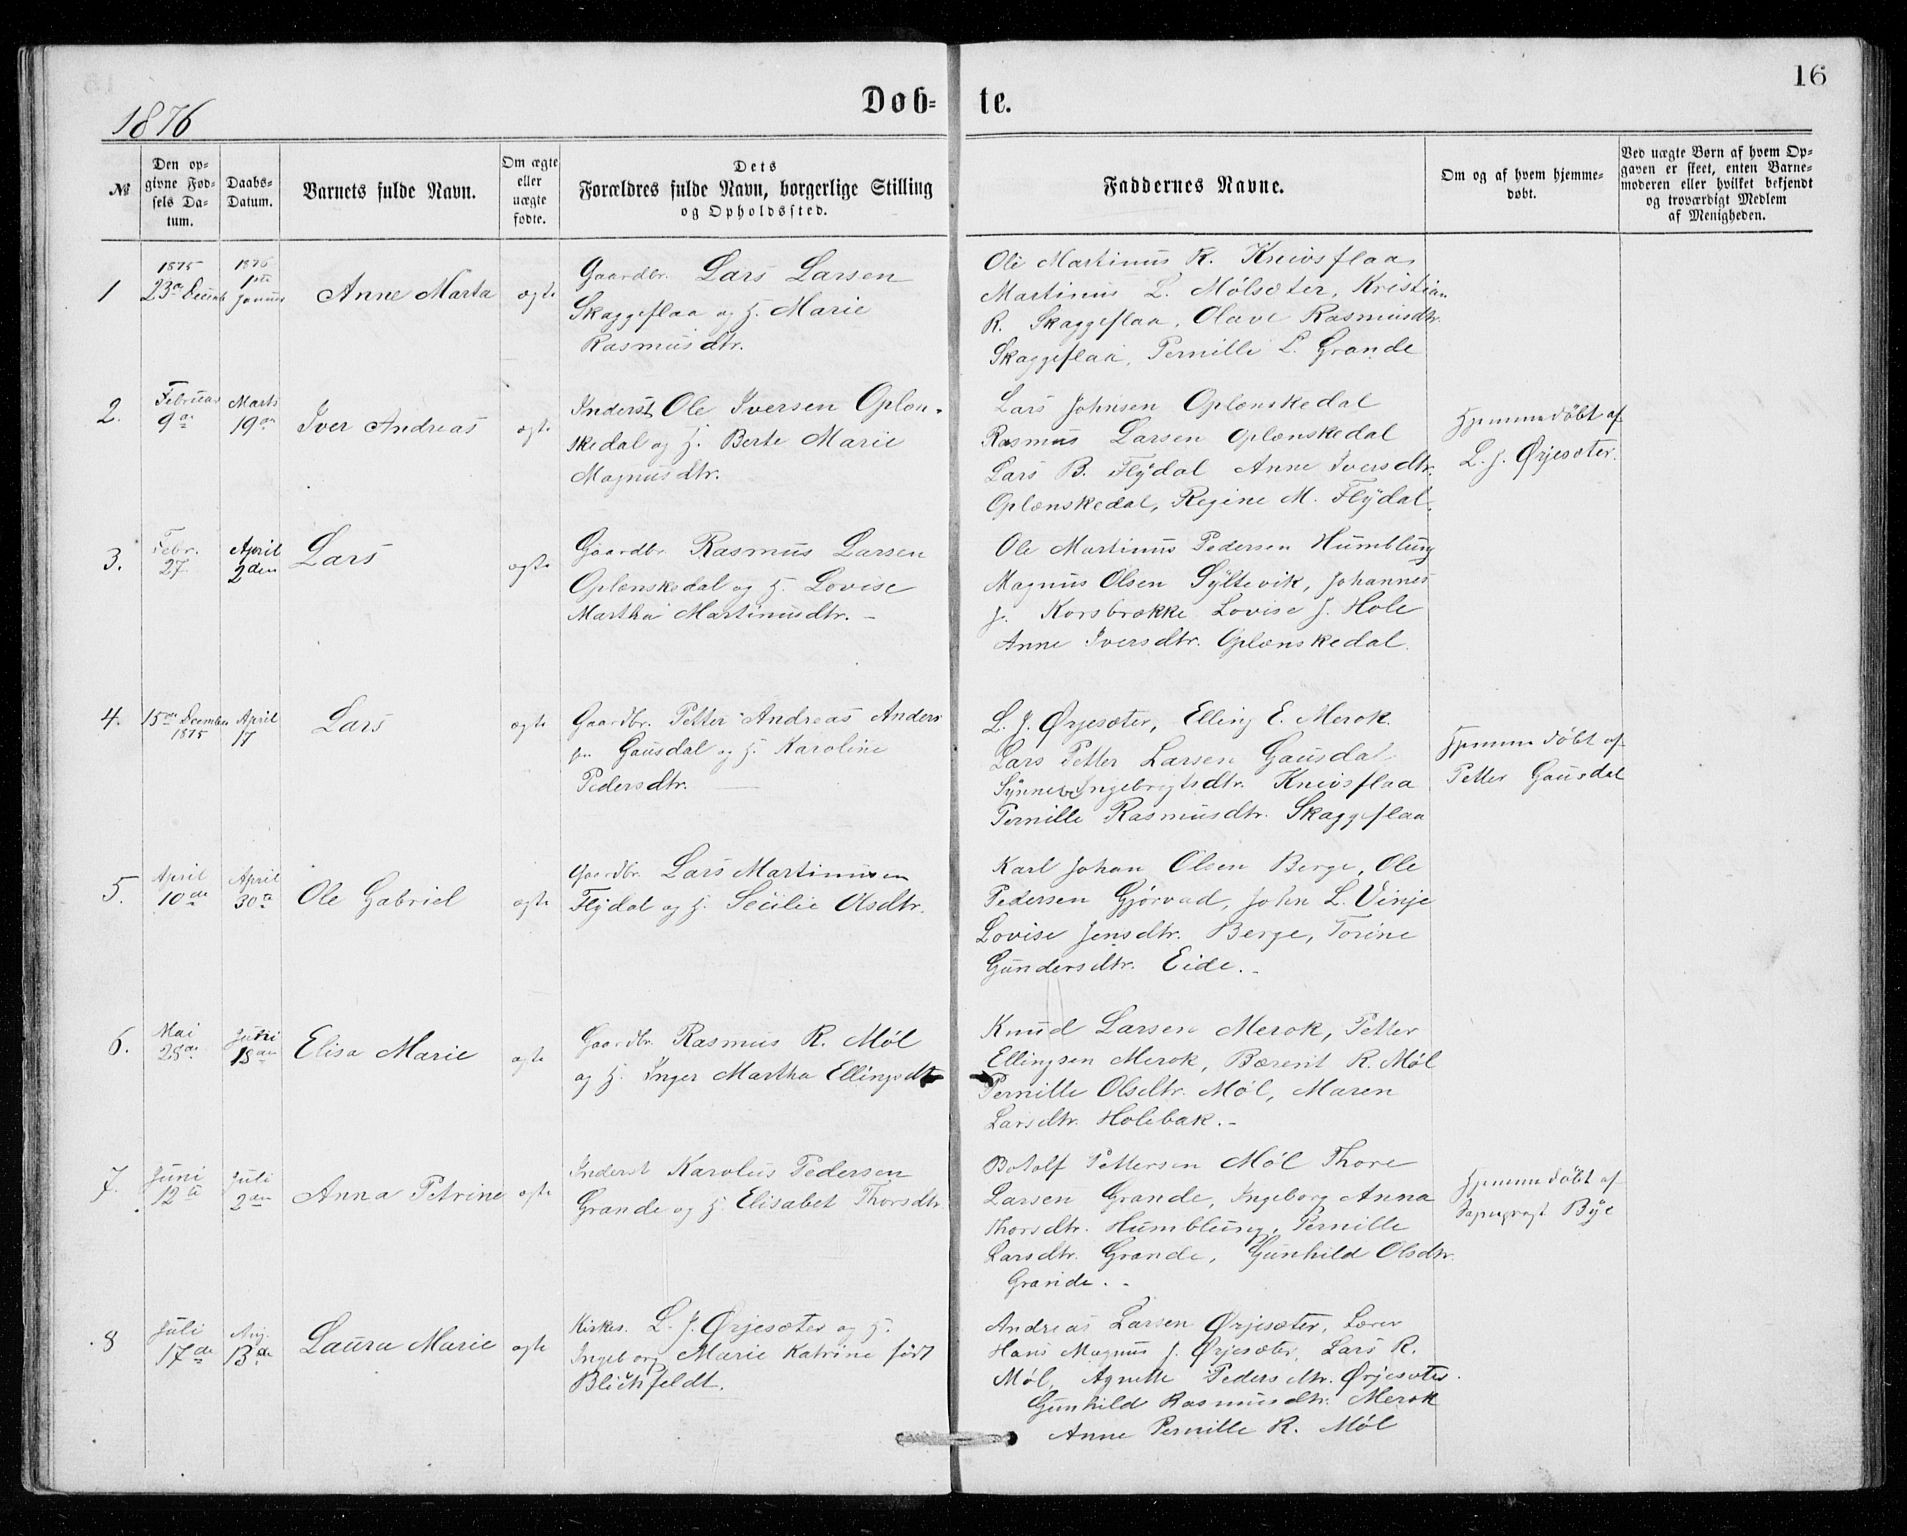 16
1876
Døb-te.
№
Den op-
givne Fød-
sels Da-
tum.
Daabs-
Datum.
Barnets fulde Navn.
Om ægte
eller
uægte
fødte.
Dets
Forældres fulde Navn, borgerlige Stilling
og Opholdssted.
Faddernes Navne.
Om og af hvem hjemme-
døbt.
Ved uægte Børn af hvem Op-
gaven er skeet, enten Barne-
moderen eller hvilket bekjendt
og troværdigt Medlem
af Menigheden.
1
1875
23de Decemb
1876
1ste
Januar
Anne Marta
ægte
Gaardbr. Lars Larsen
Skaggeflaa og H. Marie
Rasmusdtr.
Ole Martinus R. Knivsflaa
Martinus L. Mølsæter, Kristian
R. Skaggeflaa, Olave Rasmusdtr.
Skaggeflaa, Pernille L. Grande
2.
Februar
9de
Marts
19de
Iver Andreas
ægte
Inderst Ole Iversen Oplen-
skedal og H. Berte Marie
Magnusdtr.
Lars Johnsen Oplenskedal
Rasmus Larsen Oplenskedal
Lars B. Flÿdal Anne Iversdtr.
Oplenskedal, Regine M. Flÿdal.
Hjemmedøbt af
L. J. Ørjesæter.
3.
Febr.
27
April
2den
Lars
ægte
Gaardbr. Rasmus Larsen
Oplenskedal og H. Lovise
Martha Martinusdtr. -
Ole Martinus Pedersen Humblung
Magnus Olsen Sÿltevik, Johannes
J. Korsbrække Lovise J. Hole
Anne Iversdtr. Oplenskedal.
4.
15de December
1875
April
17
Lars
ægte
Gaardbr. Petter Andreas Anders
sen Gausdal og H. Karoline
Pedersdtr.
L. J. Ørjesæter, Elling E. Merok.
Lars Petter Larsen Gausdal
Sÿnneve Ingebrigtsdtr. Knivsflaa
Pernille Rasmusdtr. Skaggeflaa
Hjemmedøbt af
Petter Gausdal
5.
April
10de
April
30te
Ole Gabriel
ægte
Gaardbr. Lars Martinusen
Flÿdal og H. Secilie Olsdtr.
Karl Johan Olsen Berge, Ole
Pedersen Gjørvad, John L. Vinje
Lovise Jensdtr. Berge, Torine
Gundersdtr. Eide. -
6.
Mai
28de
Juni
18de
Elisa Marie
ægte
Gaardbr. Rasmus R. Møl
og H. Inger Martha Ellingsdtr
Knud Larsen Merok, Petter
Ellingsen Merok, Bærent R. Møl
Pernille Olsdtr. Møl, Maren
Larsdtr. Holebak. -
7.
Juni
12te
Juli
2den
Anna Petrine
ægte
Inderst Karolus Pedersen
Grande og H. Elisabet Thorsdtr
Botolf Pettersen Møl Thore
Larsen Grande, Ingeborg Anna
Thorsdtr. Humblung, Pernille
Larsdtr. Grande, Gunhild Olsdtr.
Grande. -
Hjemmedøbt af
Sognepræst Bÿe
8
Juli
17de
Aug.
13de
Laura Marie
ægte
Kirkes. L. J. Ørjesæter og H.
Ingeborg Marie Katrine født
Blichfeldt.
Andreas Larsen Ørjesæter, Lærer
Hans Magnus J. Ørjesæter, Lars R.
Møl, Agnette Pedersdtr. Ørjesæter.
Gunhild Rasmusdtr. Merok
Anne Pernille R. Møl